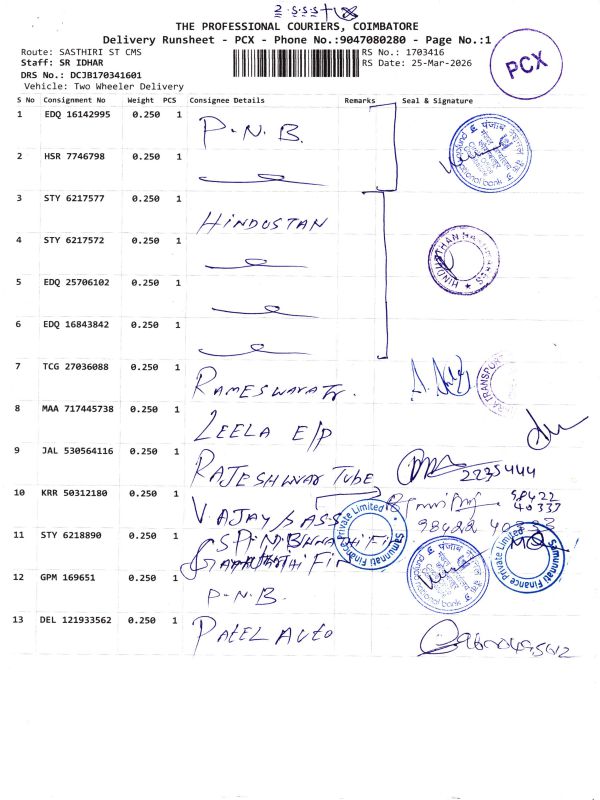 THE PROFESSIONAL COURIERS, COIMBATORE
Delivery Runsheet - PCX - Phone No.:9047080280 - Page No.:1
Route: SASTHIRI ST CMS
RS No.: 1703416
Staff: SR IDHAR
RS Date: 25-Mar-2026
PCX
DRS No.: DCJB170341601
Vehicle: Two Wheeler Delivery
S No Consignment No Weight PCS Consignee Details Remarks Seal & Signature
1 EDQ 16142995 0.250 1 P.N.B.
2 HSR 7746798 0.250 1
3 STY 6217577 0.250 1 HINDUSTAN
4 STY 6217572 0.250 1
5 EDQ 25706102 0.250 1
6 EDQ 16843842 0.250 1
7 TCG 27036088 0.250 1 RAMESWARA Tr.
8 MAA 717445738 0.250 1 LEELA E/P
9 JAL 530564116 0.250 1 RAJESHWAR TUBE 2235444
10 KRR 50312180 0.250 1 VAJAY/S ASS 98422 40333
11 STY 6218890 0.250 1
Samunnati Finance Private Limited
Samunnati Finance Private Limited
12 GPM 169651 0.250 1 P.N.B.
13 DEL 121933562 0.250 1 PATEL AUTO